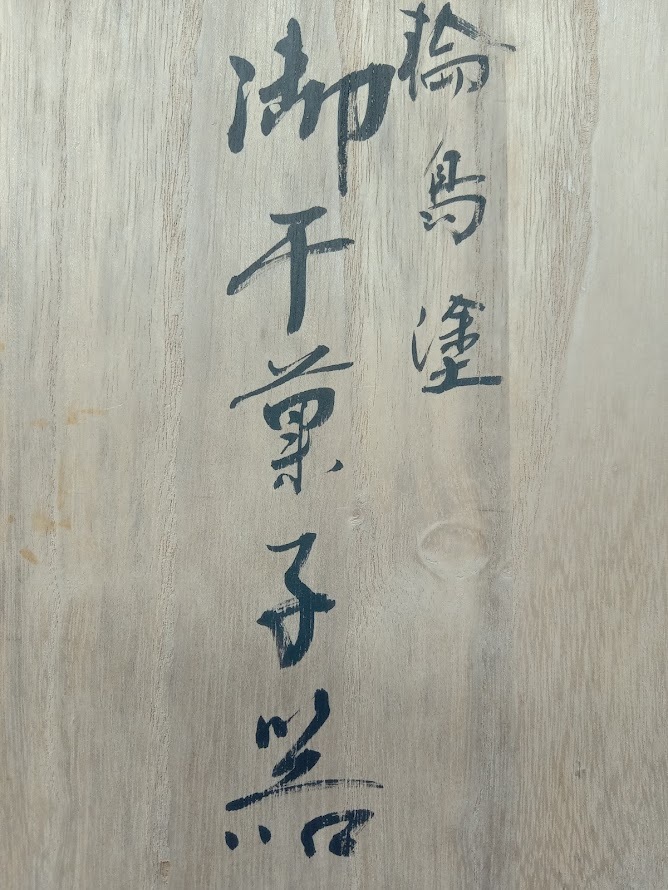 輪島塗
御干菓子器